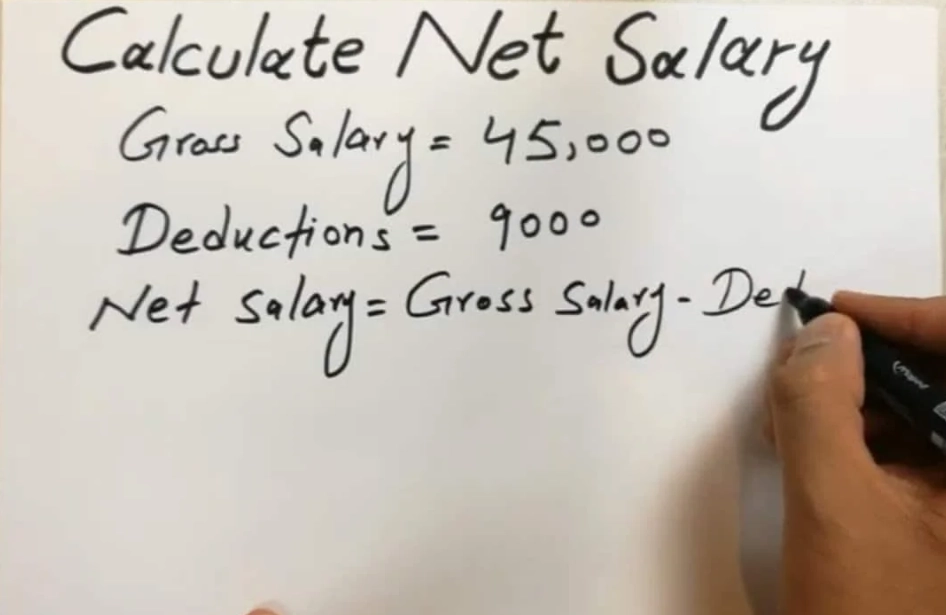 Calculate Net Salary
Gross Salary = 45,000
Deductions = 9000
Net salary = Gross Salary - Ded